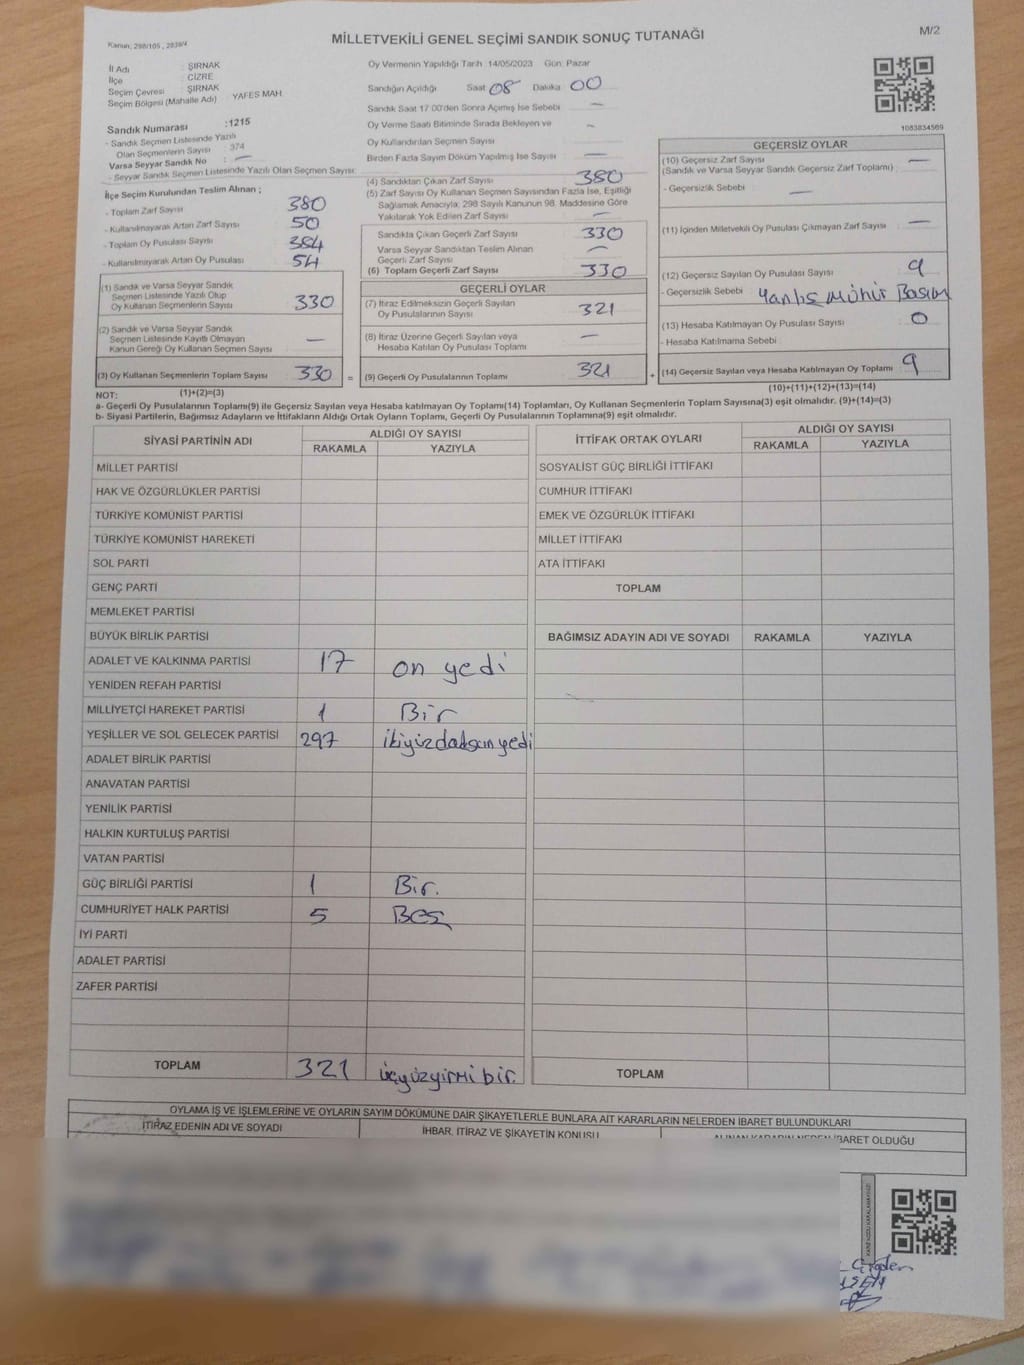 Kanun; 298/105 , 2839/4
MİLLETVEKİLİ GENEL SEÇİMİ SANDIK SONUÇ TUTANAĞI
M/2
İl Adı : ŞIRNAK
İlçe : CİZRE
Seçim Çevresi : ŞIRNAK
Seçim Bölgesi (Mahalle Adı) YAFES MAH.
Sandık Numarası :1215
- Sandık Seçmen Listesinde Yazılı
Olan Seçmenlerin Sayısı : 374
Varsa Seyyar Sandık No : —
- Seyyar Sandık Seçmen Listesinde Yazılı Olan Seçmen Sayısı:
Oy Vermenin Yapıldığı Tarih :14/05/2023 Gün: Pazar
Sandığın Açıldığı Saat 08 Dakika 00
Sandık Saat 17:00'den Sonra Açılmış İse Sebebi —
Oy Verme Saati Bitiminde Sırada Bekleyen ve
Oy Kullandırılan Seçmen Sayısı —
Birden Fazla Sayım Döküm Yapılmış İse Sayısı —
1083834569
İlçe Seçim Kurulundan Teslim Alınan ;
- Toplam Zarf Sayısı 380
- Kullanılmayarak Artan Zarf Sayısı 50
- Toplam Oy Pusulası Sayısı 384
- Kullanılmayarak Artan Oy Pusulası 54
(1) Sandık ve Varsa Seyyar Sandık
Seçmen Listesinde Yazılı Olup
Oy Kullanan Seçmenlerin Sayısı 330
(2) Sandık ve Varsa Seyyar Sandık
Seçmen Listesinde Kayıtlı Olmayan
Kanun Gereği Oy Kullanan Seçmen Sayısı —
(3) Oy Kullanan Seçmenlerin Toplam Sayısı 330 =
(4) Sandıktan Çıkan Zarf Sayısı 380
(5) Zarf Sayısı Oy Kullanan Seçmen Sayısından Fazla İse, Eşitliği
Sağlamak Amacıyla; 298 Sayılı Kanunun 98. Maddesine Göre
Yakılarak Yok Edilen Zarf Sayısı —
Sandıkta Çıkan Geçerli Zarf Sayısı 330
Varsa Seyyar Sandıktan Teslim Alınan
Geçerli Zarf Sayısı —
(6) Toplam Geçerli Zarf Sayısı 330
GEÇERLİ OYLAR
(7) İtiraz Edilmeksizin Geçerli Sayılan
Oy Pusulalarının Sayısı 321
(8) İtiraz Üzerine Geçerli Sayılan veya
Hesaba Katılan Oy Pusulası Toplamı —
(9) Geçerli Oy Pusulalarının Toplamı 321 +
GEÇERSİZ OYLAR
(10) Geçersiz Zarf Sayısı
(Sandık ve Varsa Seyyar Sandık Geçersiz Zarf Toplamı) —
- Geçersizlik Sebebi —
(11) İçinden Milletvekili Oy Pusulası Çıkmayan Zarf Sayısı —
(12) Geçersiz Sayılan Oy Pusulası Sayısı 9
- Geçersizlik Sebebi Yanlış Mühür Basım
(13) Hesaba Katılmayan Oy Pusulası Sayısı 0
- Hesaba Katılmama Sebebi
(14) Geçersiz Sayılan veya Hesaba Katılmayan Oy Toplamı 9
NOT: (1)+(2)=(3)
(10)+(11)+(12)+(13)=(14)
a- Geçerli Oy Pusulalarının Toplamı(9) ile Geçersiz Sayılan veya Hesaba katılmayan Oy Toplamı(14) Toplamları, Oy Kullanan Seçmenlerin Toplam Sayısına(3) eşit olmalıdır. (9)+(14)=(3)
b- Siyasi Partilerin, Bağımsız Adayların ve İttifakların Aldığı Ortak Oyların Toplamı, Geçerli Oy Pusulalarının Toplamına(9) eşit olmalıdır.
SİYASİ PARTİNİN ADI ALDIĞI OY SAYISI
RAKAMLA YAZIYLA
MİLLET PARTİSİ
HAK VE ÖZGÜRLÜKLER PARTİSİ
TÜRKİYE KOMÜNİST PARTİSİ
TÜRKİYE KOMÜNİST HAREKETİ
SOL PARTİ
GENÇ PARTİ
MEMLEKET PARTİSİ
BÜYÜK BİRLİK PARTİSİ
ADALET VE KALKINMA PARTİSİ 17 on yedi
YENİDEN REFAH PARTİSİ
MİLLİYETÇİ HAREKET PARTİSİ 1 Bir
YEŞİLLER VE SOL GELECEK PARTİSİ 297 ikiyüzdoksanyedi
ADALET BİRLİK PARTİSİ
ANAVATAN PARTİSİ
YENİLİK PARTİSİ
HALKIN KURTULUŞ PARTİSİ
VATAN PARTİSİ
GÜÇ BİRLİĞİ PARTİSİ 1 Bir.
CUMHURİYET HALK PARTİSİ 5 Beş
İYİ PARTİ
ADALET PARTİSİ
ZAFER PARTİSİ
TOPLAM 321 üçyüzyirmi bir.
İTTİFAK ORTAK OYLARI ALDIĞI OY SAYISI
RAKAMLA YAZIYLA
SOSYALİST GÜÇ BİRLİĞİ İTTİFAKI
CUMHUR İTTİFAKI
EMEK VE ÖZGÜRLÜK İTTİFAKI
MİLLET İTTİFAKI
ATA İTTİFAKI
TOPLAM
BAĞIMSIZ ADAYIN ADI VE SOYADI RAKAMLA YAZIYLA
TOPLAM
OYLAMA İŞ VE İŞLEMLERİNE VE OYLARIN SAYIM DÖKÜMÜNE DAİR ŞİKAYETLERLE BUNLARA AİT KARARLARIN NELERDEN İBARET BULUNDUKLARI
İTİRAZ EDENİN ADI VE SOYADI
İHBAR, İTİRAZ VE ŞİKAYETİN KONUSU
ALINAN KARARIN NEDEN İBARET OLDUĞU